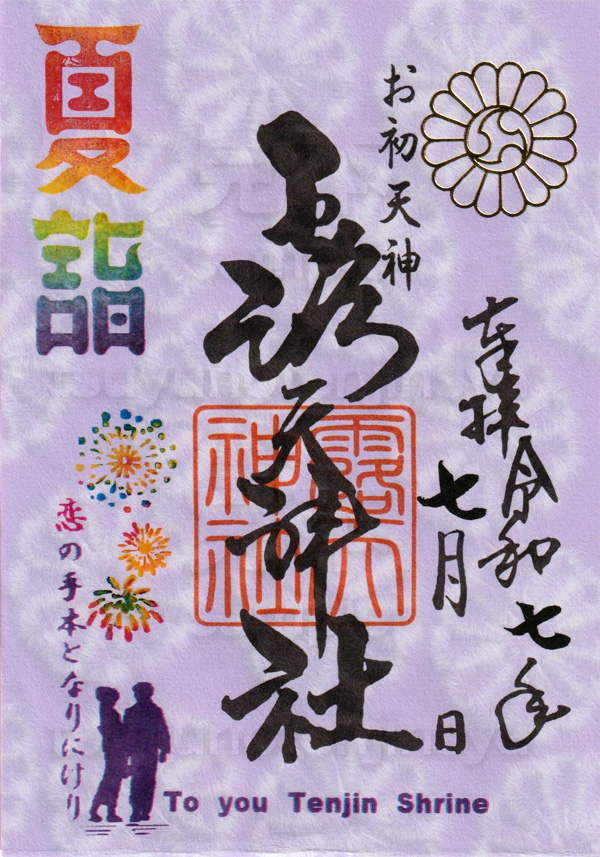 奉拝 令和七年
七月 日
お初天神
露天神社
露天
神社
夏詣
恋の手本となりにけり
To you Tenjin Shrine